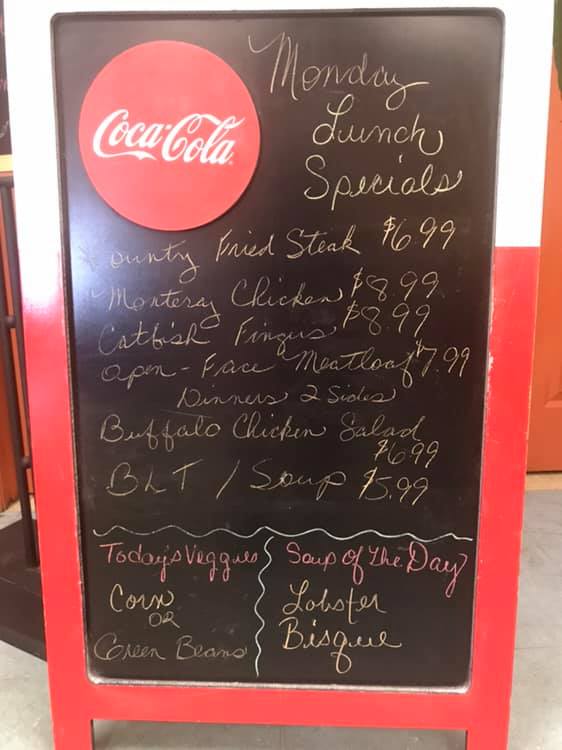 Coca-Cola
Monday
Lunch
Specials
Counrty Fried Steak $6.99
Monteray Chicken $8.99
Catfish Fingers $8.99
Open-Face Meatloaf $7.99
Dinners 2 Sides
Buffalo Chicken Salad
$6.99
BLT / Soup $5.99
Today's Veggies
Corn
OR
Green Beans
Soup Of The Day
Lobster
Bisque